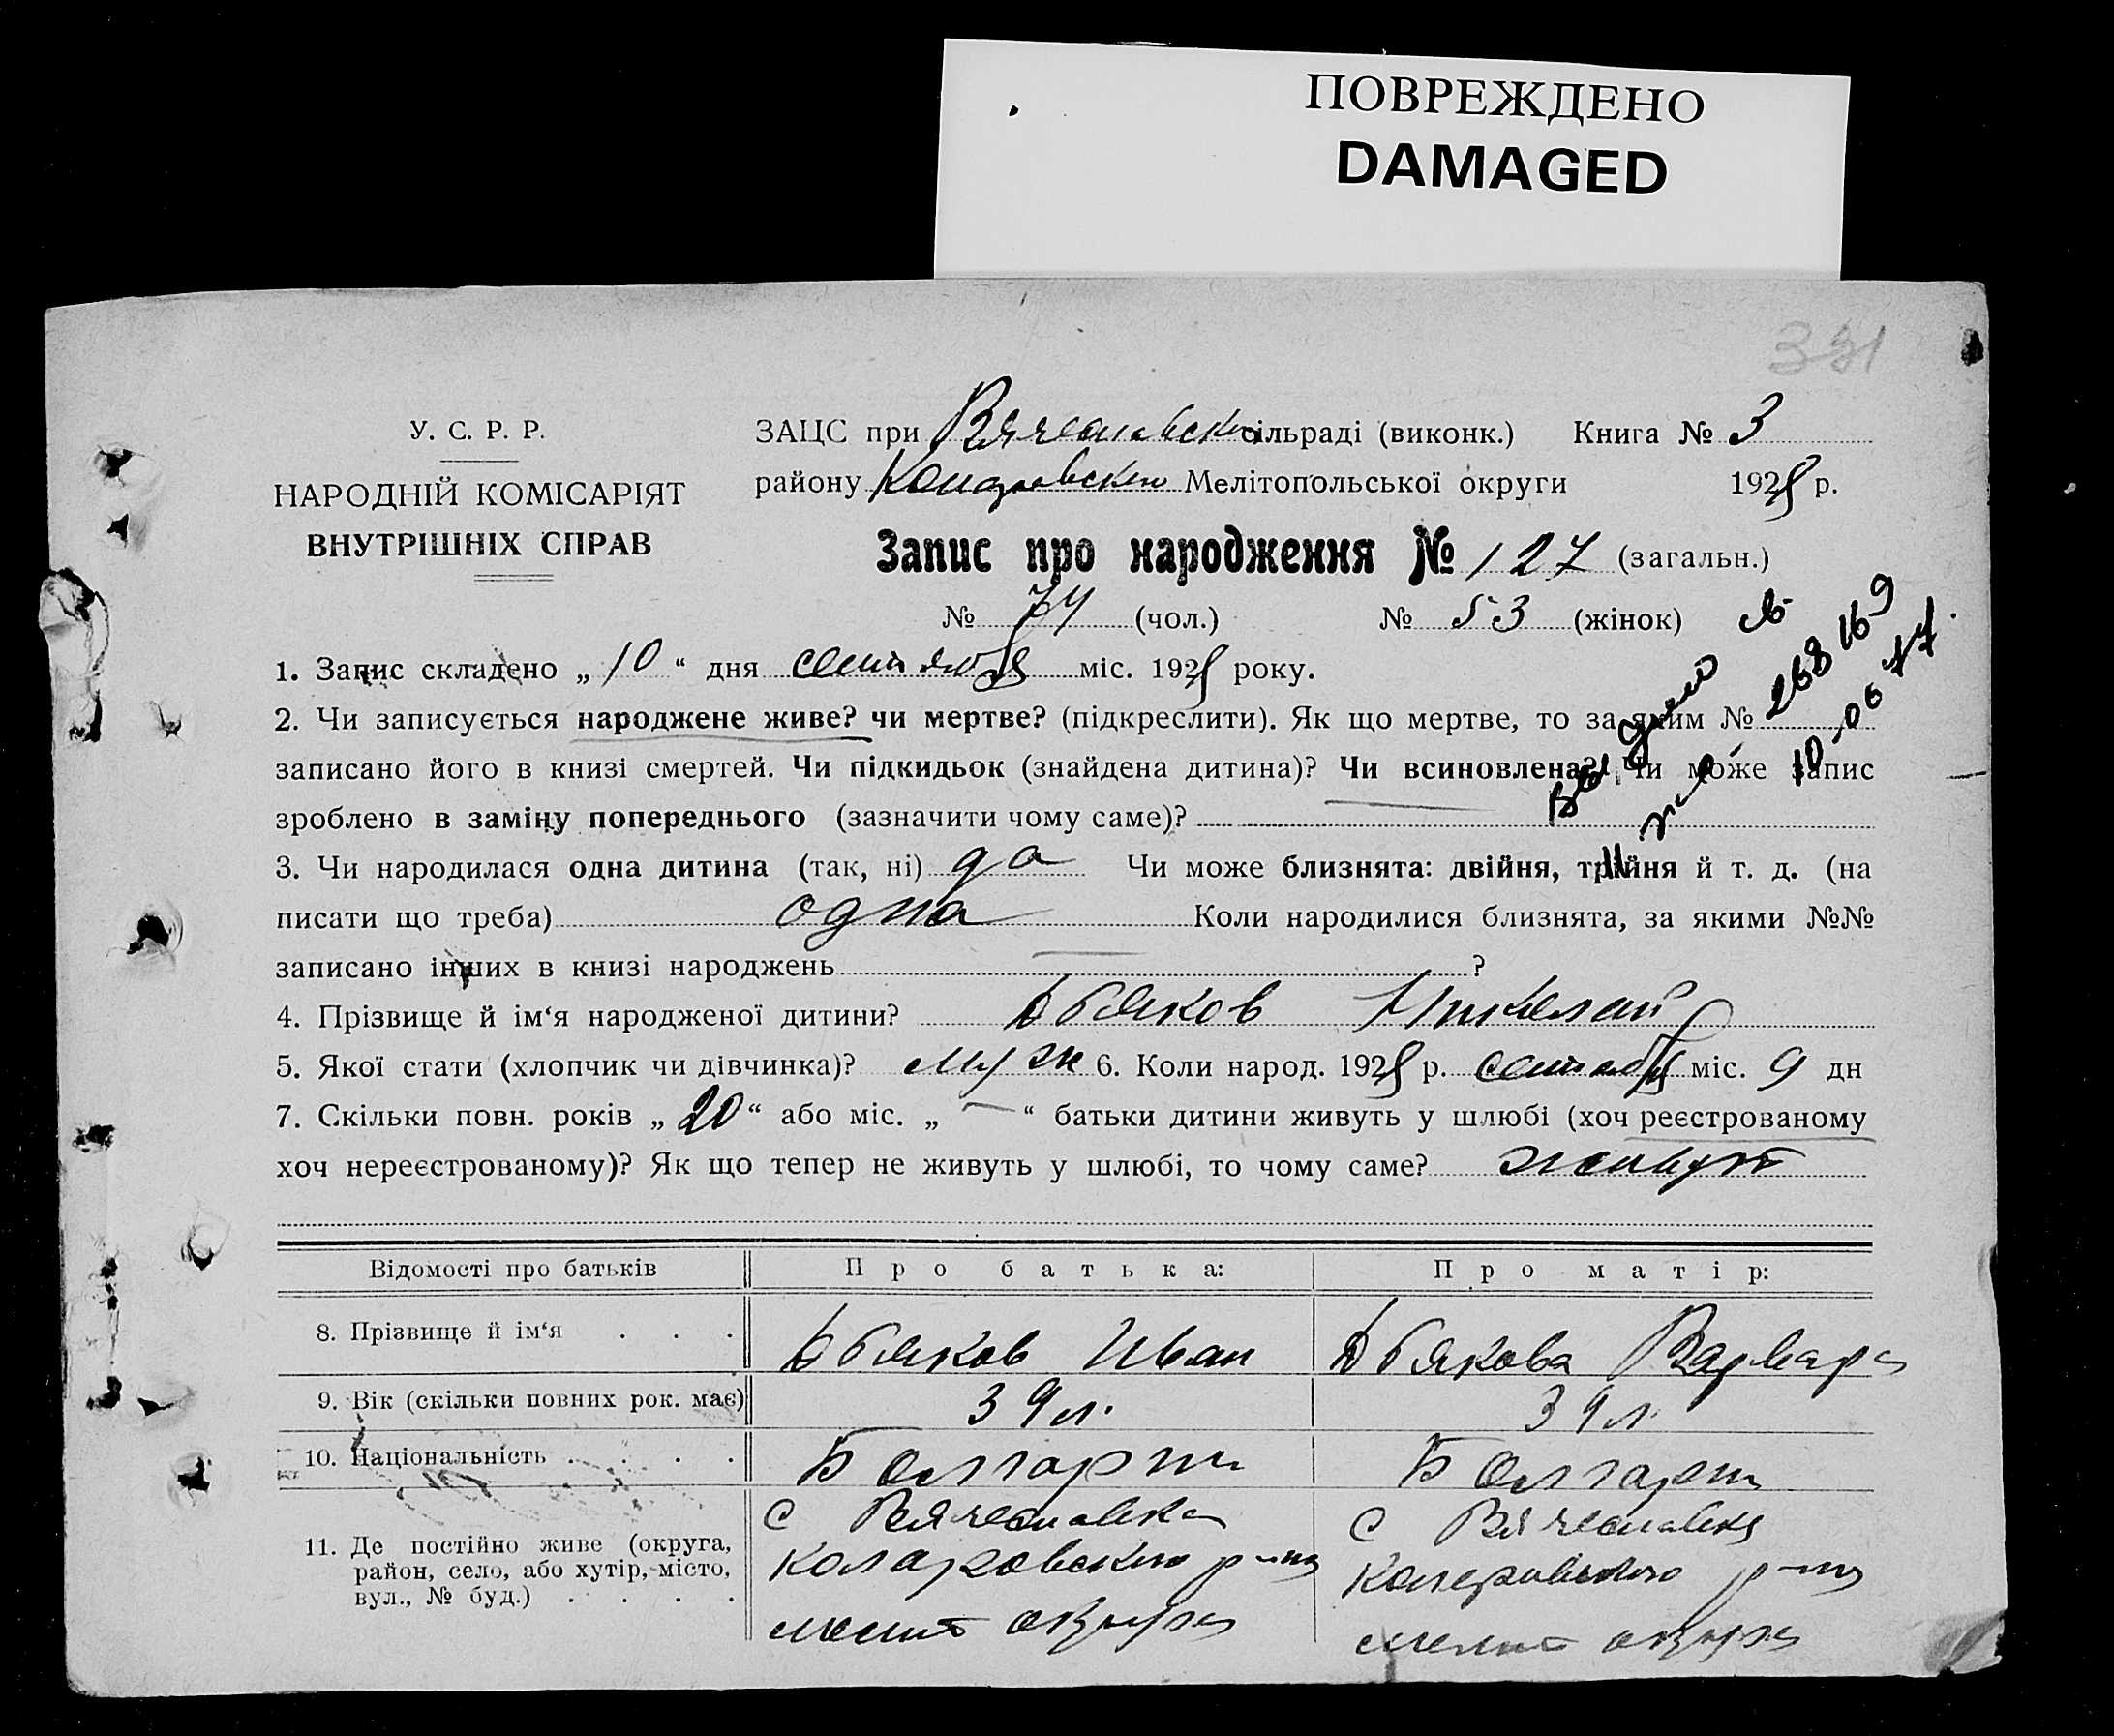 ПОВРЕЖДЕНО
DAMAGED
331
У. С. Р. Р.
НАРОДНІЙ КОМІСАРІЯТ
ВНУТРІШНІХ СПРАВ
ЗАЦС при Вячеславском сільраді (виконк.) Книга № 3
району Коларовского Мелітопольської округи 1928 р.
Запис про народження № 127 (загальн.)
№ 74 (чол.) № 53 (жінок)
1. Запис складено „ 10 “ дня сентября міс. 1928 року.
2. Чи записується народжене живе? чи мертве? (підкреслити). Як що мертве, то за яким №
записано його в книзі смертей. Чи підкидьок (знайдена дитина)? Чи всиновлена? Чи може запис
зроблено в заміну попереднього (зазначити чому саме)?
Выдано
268169
3. Чи народилася одна дитина (так, ні) да Чи може близнята: двійня, трійня й т. д. (на
писати що треба) одна Коли народилися близнята, за якими №№
записано інших в книзі народжень ?
4. Прізвище й ім‘я народженої дитини? Дбяков Николай
5. Якої стати (хлопчик чи дівчинка)? муж 6. Коли народ. 1928 р. сентября міс. 9 дн
7. Скільки повн. років „ 20 “ або міс. „ — “ батьки дитини живуть у шлюбі (хоч реєстрованому
хоч нереєстрованому)? Як що тепер не живуть у шлюбі, то чому саме? живут
Відомості про батьків Про батька: Про матір:
8. Прізвище й ім‘я . . . Дбяков Иван Дбякова Варвара
9. Вік (скільки повних рок. має) 39 л. 39 л.
10. Національність . . . . Болгари Болгари
11. Де постійно живе (округа, район, село, або хутір, місто, вул., № буд.) . . . .
с Вячеславка
Коларовского р-на
мелит округа
с Вячеславка
Коларовского р-на
мелит округа